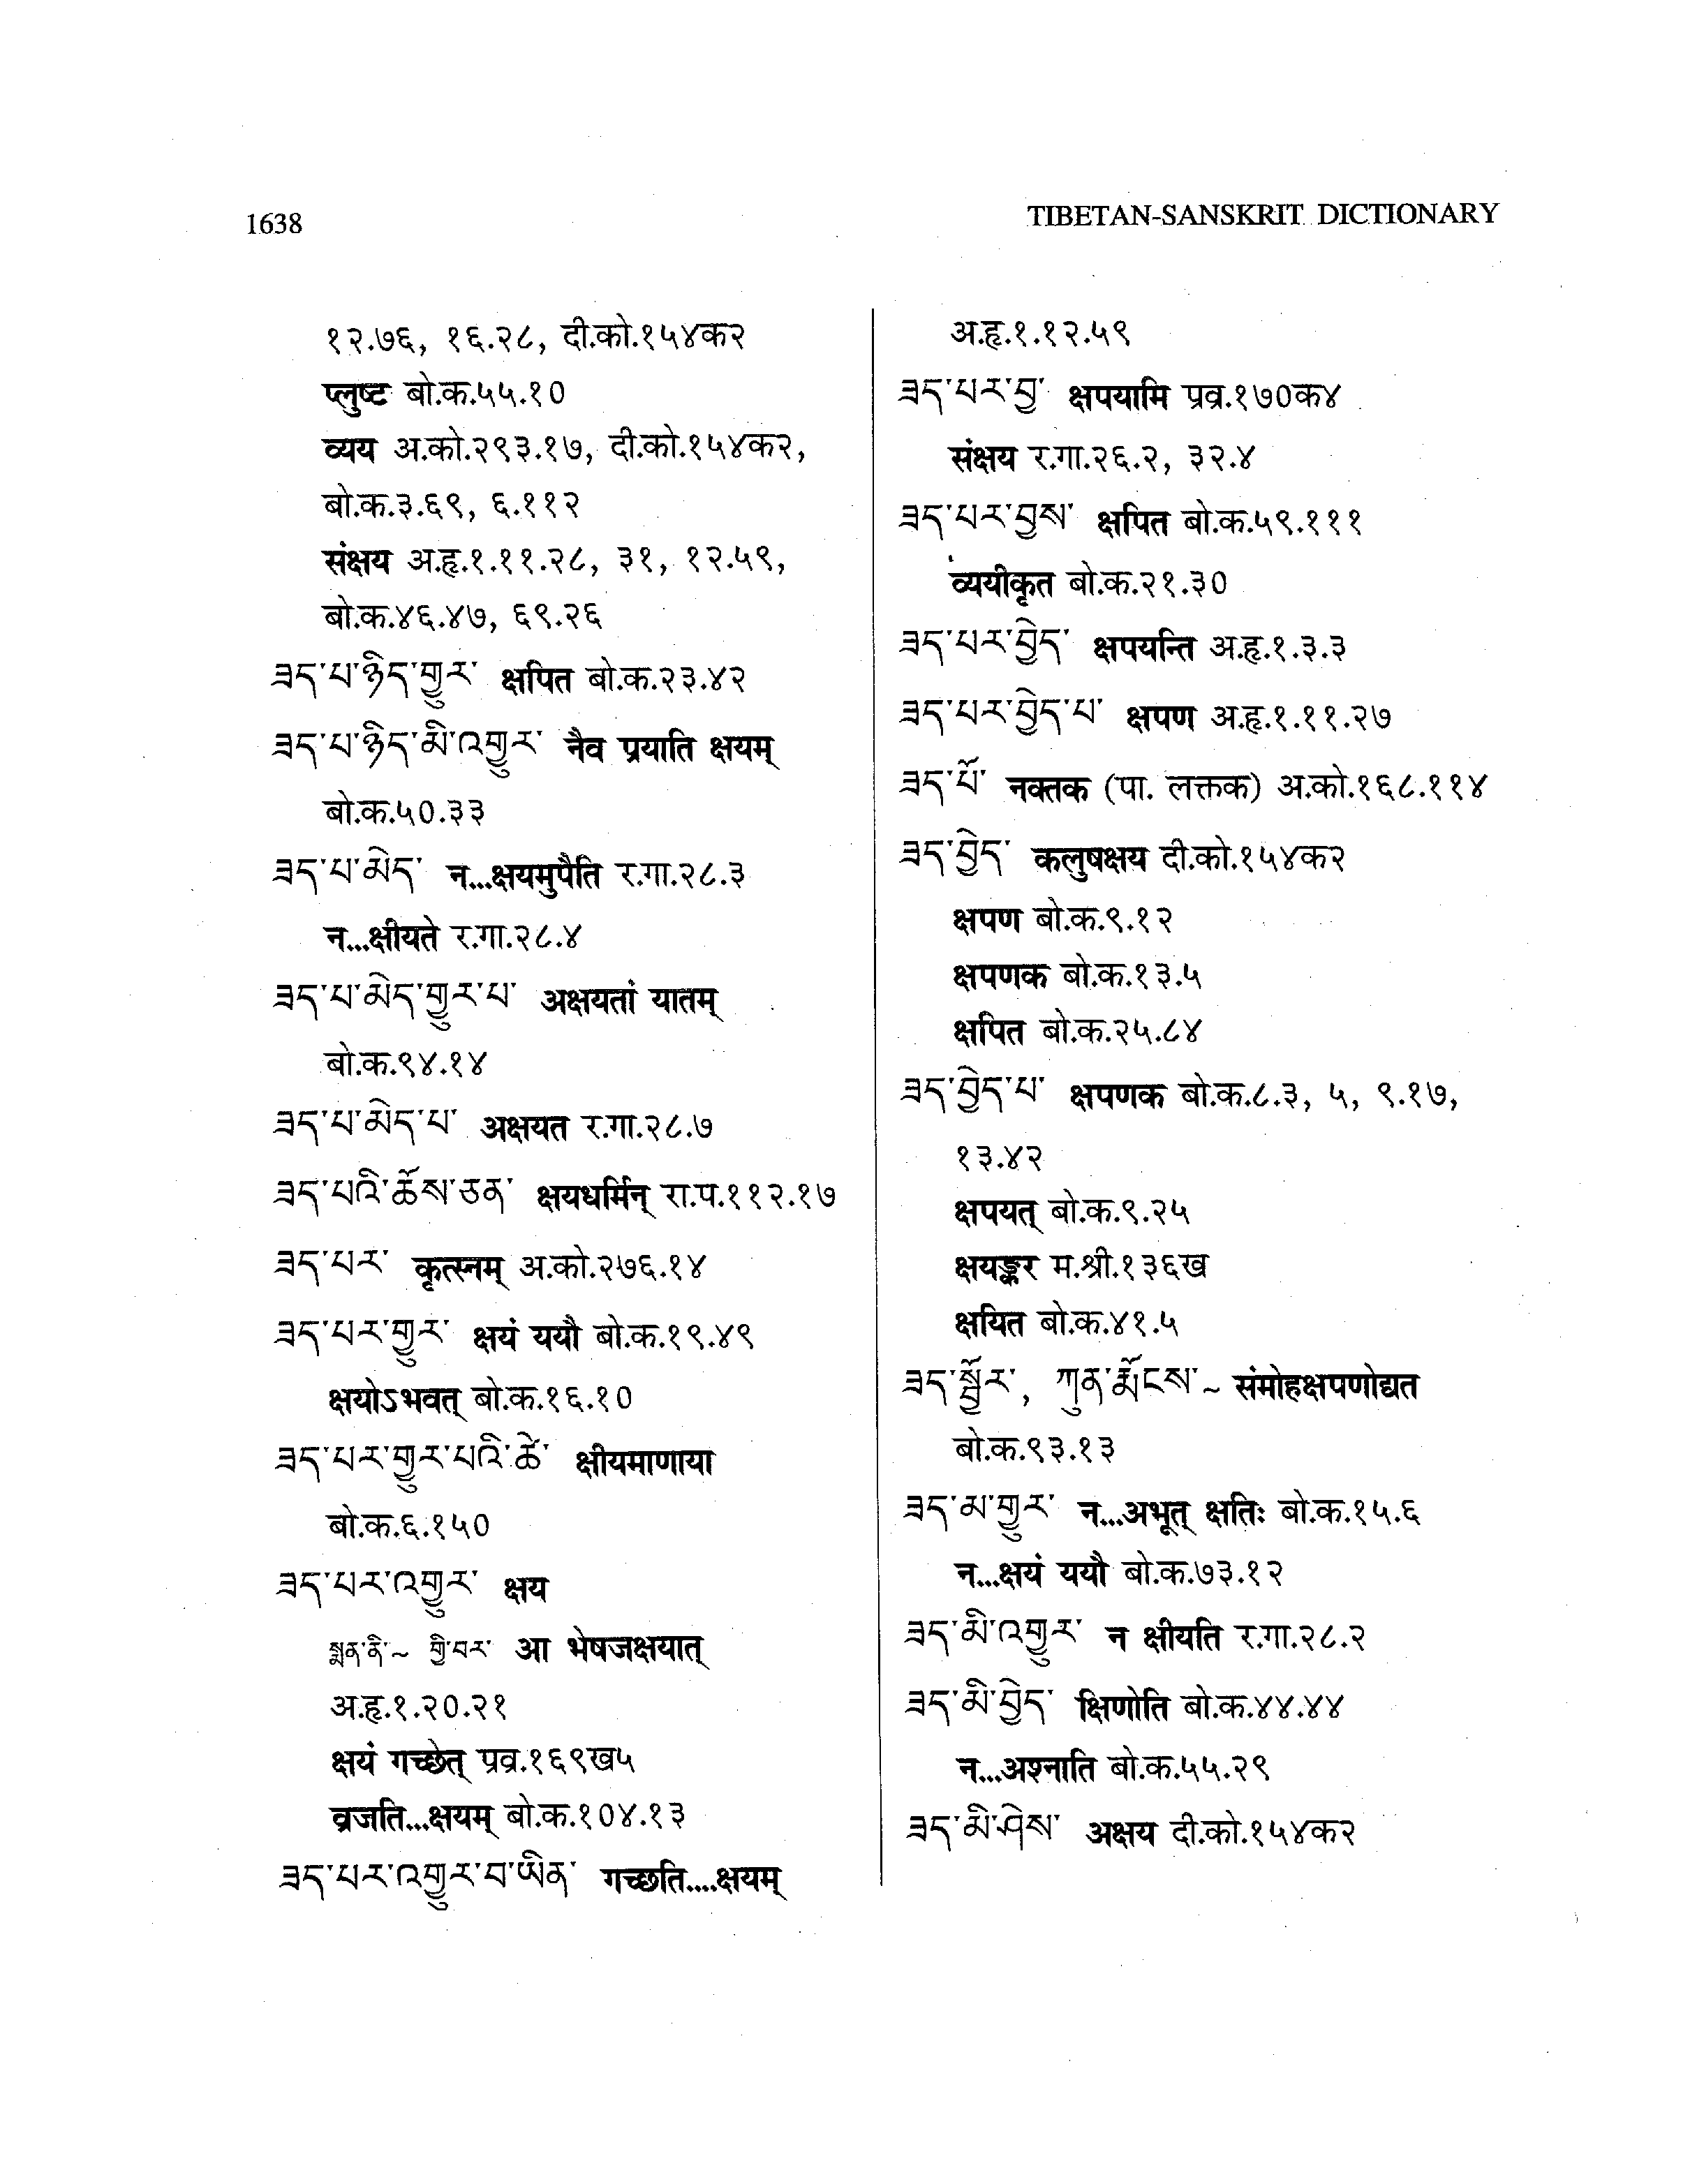 1638
TIBETAN-SANSKRIT DICTIONARY
१२.७६, १६.२८, दी.को.१५४क२
प्लुष्ट बो.क.५५.१०
व्यय अ.को.२९३.१७, दी.को.१५४क२,
बो.क.३.६९, ६.११२
संक्षय अ.हृ.१.११.२८, ३१, १२.५९,
बो.क.४६.४७, ६९.२६
ཟད་པ་ཉིད་གྱུར་ क्षपित बो.क.२३.४२
ཟད་པ་ཉིད་མི་འགྱུར་ नैव प्रयाति क्षयम्
बो.क.५०.३३
ཟད་པ་མེད་ न...क्षयमुपैति र.गा.२८.३
न...क्षीयते र.गा.२८.४
ཟད་པ་མེད་གྱུར་པ་ अक्षयतां यातम्
बो.क.९४.१४
ཟད་པ་མེད་པ་ अक्षयत र.गा.२८.७
ཟད་པའི་ཆོས་ཅན་ क्षयधर्मिन् रा.प.११२.१७
ཟད་པར་ कृत्स्नम् अ.को.२७६.१४
ཟད་པར་གྱུར་ क्षयं ययौ बो.क.१९.४९
क्षयोऽभवत् बो.क.१६.१०
ཟད་པར་གྱུར་པའི་ཚེ་ क्षीयमाणाया
बो.क.६.१५०
ཟད་པར་འགྱུར་ क्षय
སྨན་ནི་~ གྱི་བར་ आ भेषजक्षयात्
अ.हृ.१.२०.२१
क्षयं गच्छेत् प्रव्र.१६९ख५
व्रजति...क्षयम् बो.क.१०४.१३
ཟད་པར་འགྱུར་བ་ཡིན་ गच्छति....क्षयम्
अ.हृ.१.१२.५९
ཟད་པར་བྱ་ क्षपयामि प्रव्र.१७०क४
संक्षय र.गा.२६.२, ३२.४
ཟད་པར་བྱས་ क्षपित बो.क.५९.१११
व्ययीकृत बो.क.२१.३०
ཟད་པར་བྱེད་ क्षपयन्ति अ.हृ.१.३.३
ཟད་པར་བྱེད་པ་ क्षपण अ.हृ.१.११.२७
ཟད་པོ་ नक्तक (पा. लक्तक) अ.को.१६८.११४
ཟད་བྱེད་ कलुषक्षय दी.को.१५४क२
क्षपण बो.क.९.१२
क्षपणक बो.क.१३.५
क्षपित बो.क.२५.८४
ཟད་བྱེད་པ་ क्षपणक बो.क.८.३, ५, ९.१७,
१३.४२
क्षपयत् बो.क.९.२५
क्षयङ्कर म.श्री.१३६ख
क्षयित बो.क.४१.५
ཟད་སྦྱོར་, ཀུན་རྨོངས་~ संमोहक्षपणोद्यत
बो.क.९३.१३
ཟད་མ་གྱུར་ न...अभूत् क्षतिः बो.क.१५.६
न...क्षयं ययौ बो.क.७३.१२
ཟད་མི་འགྱུར་ न क्षीयति र.गा.२८.२
ཟད་མི་བྱེད་ क्षिणोति बो.क.४४.४४
न...अश्नाति बो.क.५५.२९
ཟད་མི་ཤེས་ अक्षय दी.को.१५४क२